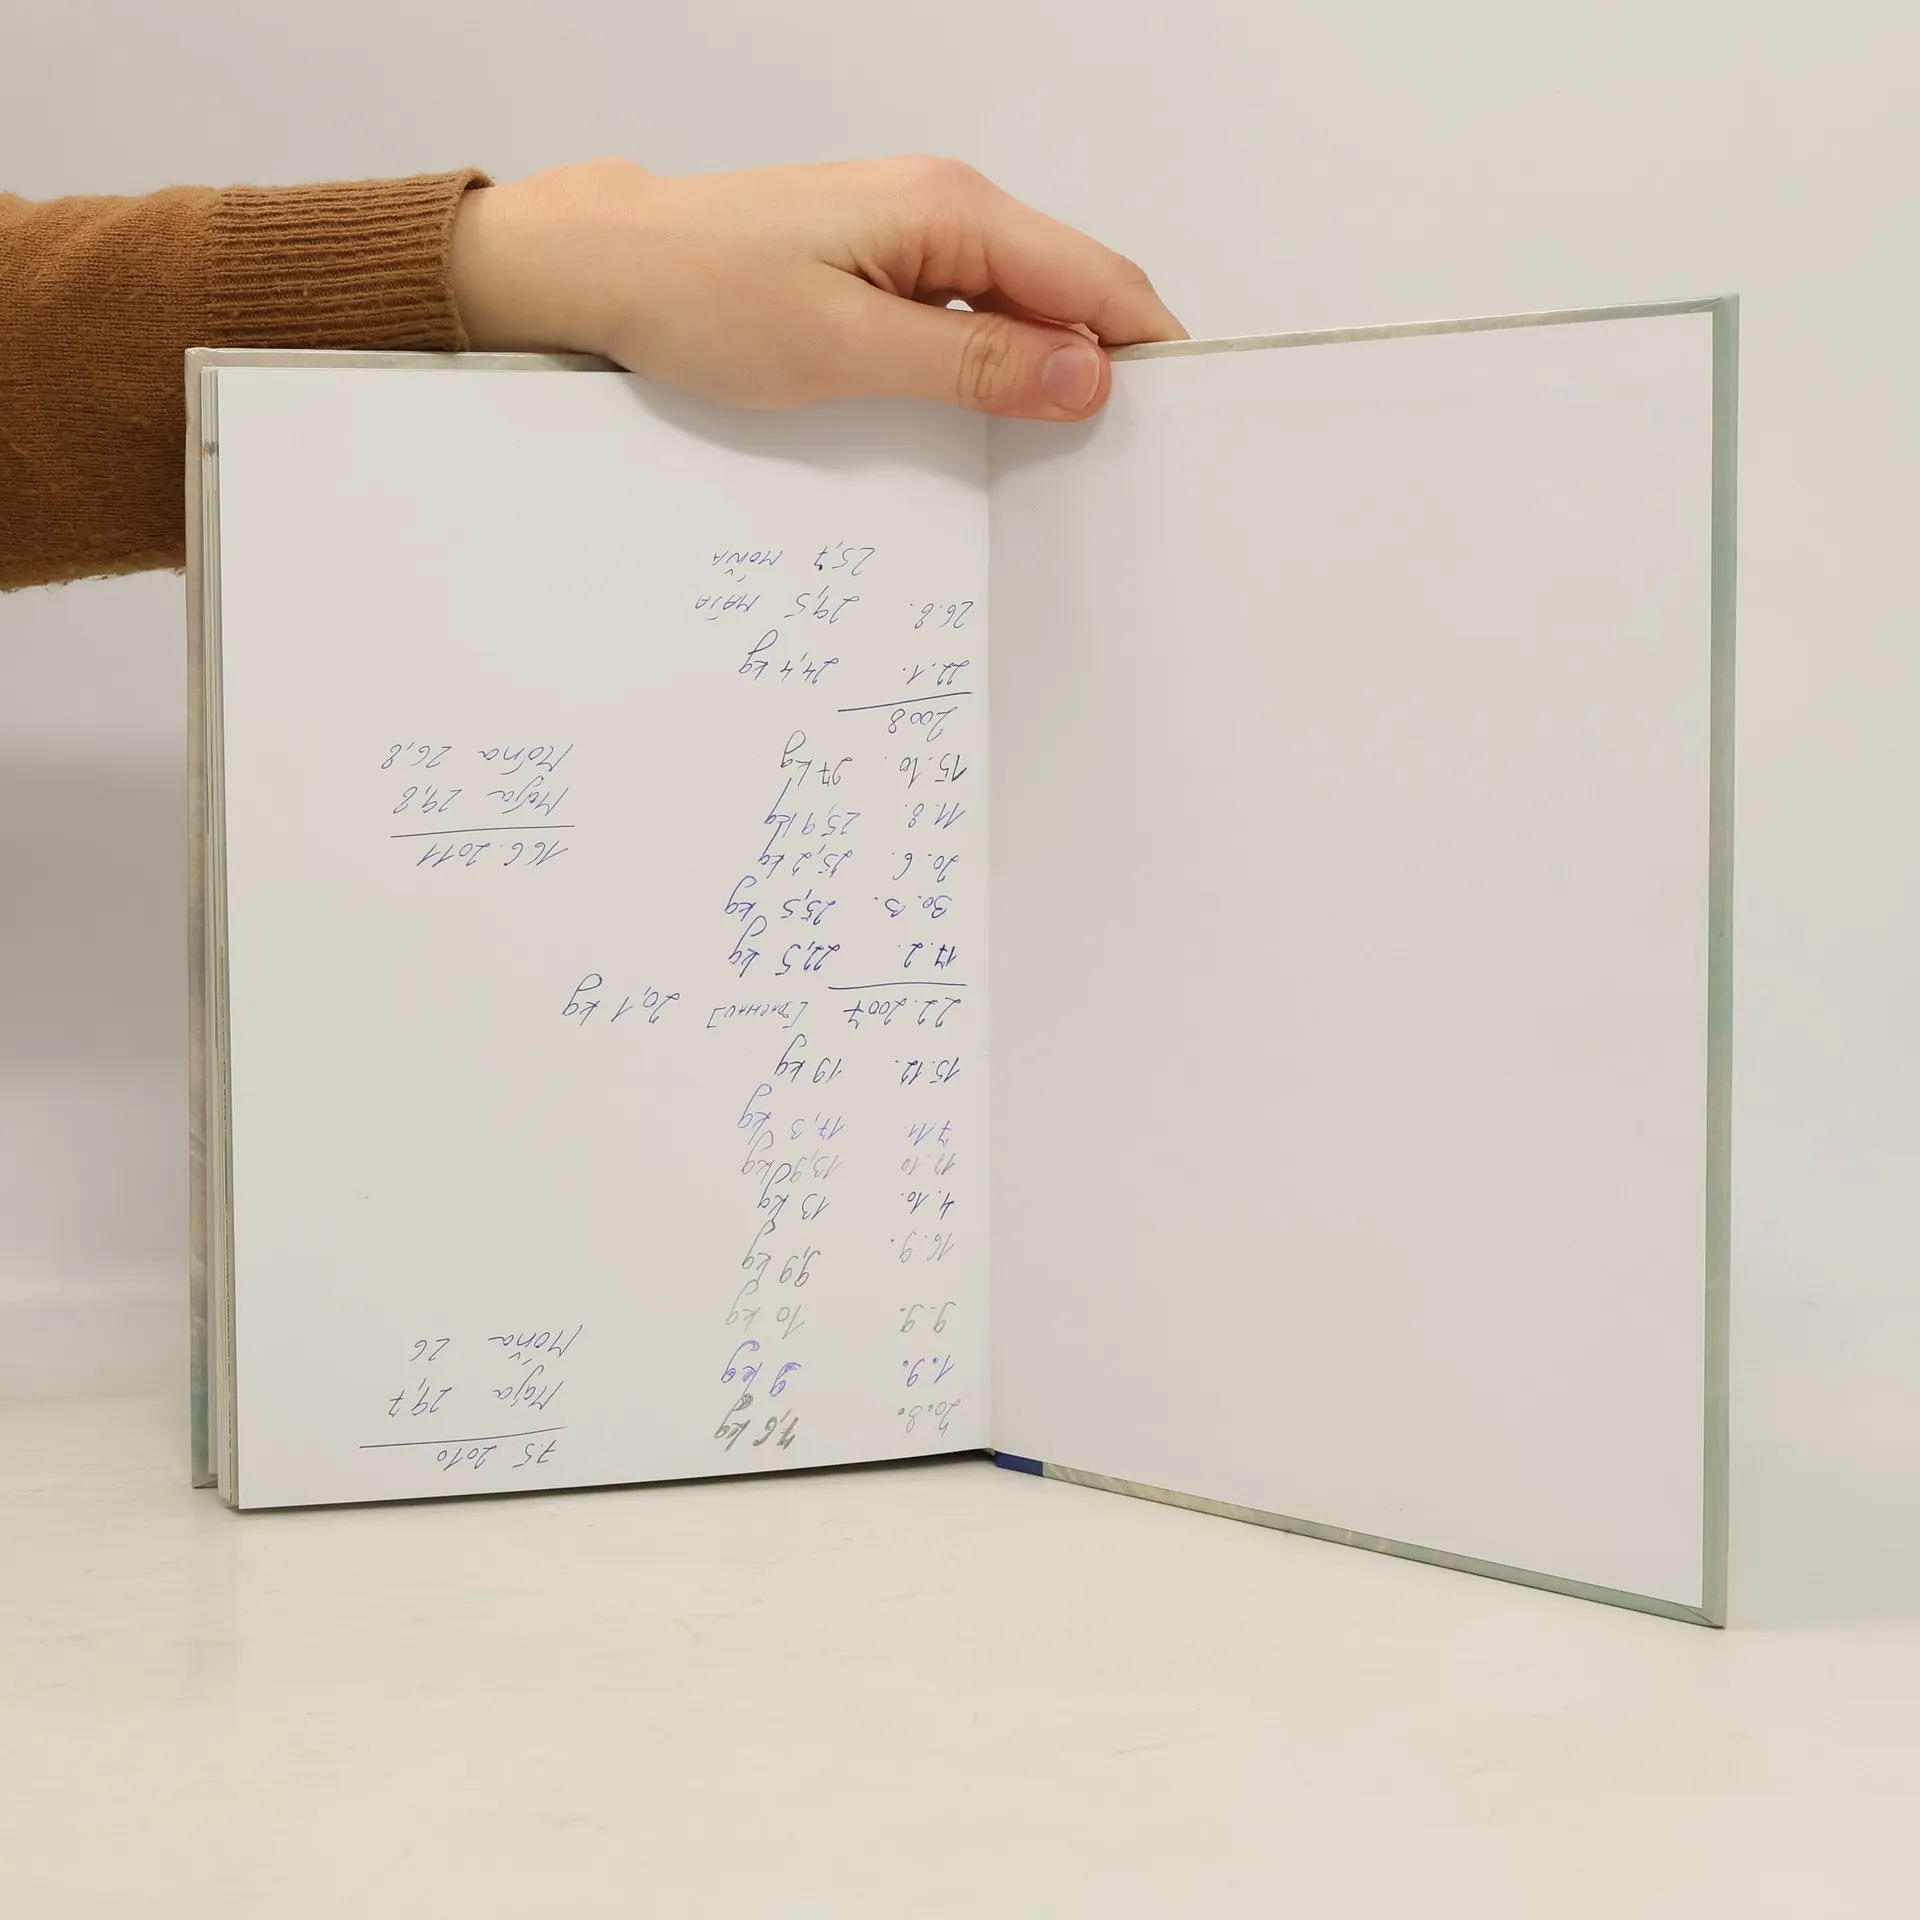 20.8. 7,6 kg
1.9. 9 kg
9.9. 10 kg
16.9. 9,9 kg
4.10. 13 kg
17.10 13,90 kg
7.11. 17,3 kg
15.12. 19 kg
22.2007 20,1 kg
17.2. 22,5 kg
30.3. 25,5 kg
20.6. 25,2 kg
11.8. 25,9 kg
15.10. 27 kg
2008
22.1. 24,4 kg
26.8. 29,5 MÁJA
25,7 MOŇA
7.5. 2010
Mája 29,7
Moňa 26
16.6. 2011
Mája 29,8
Moňa 26,8